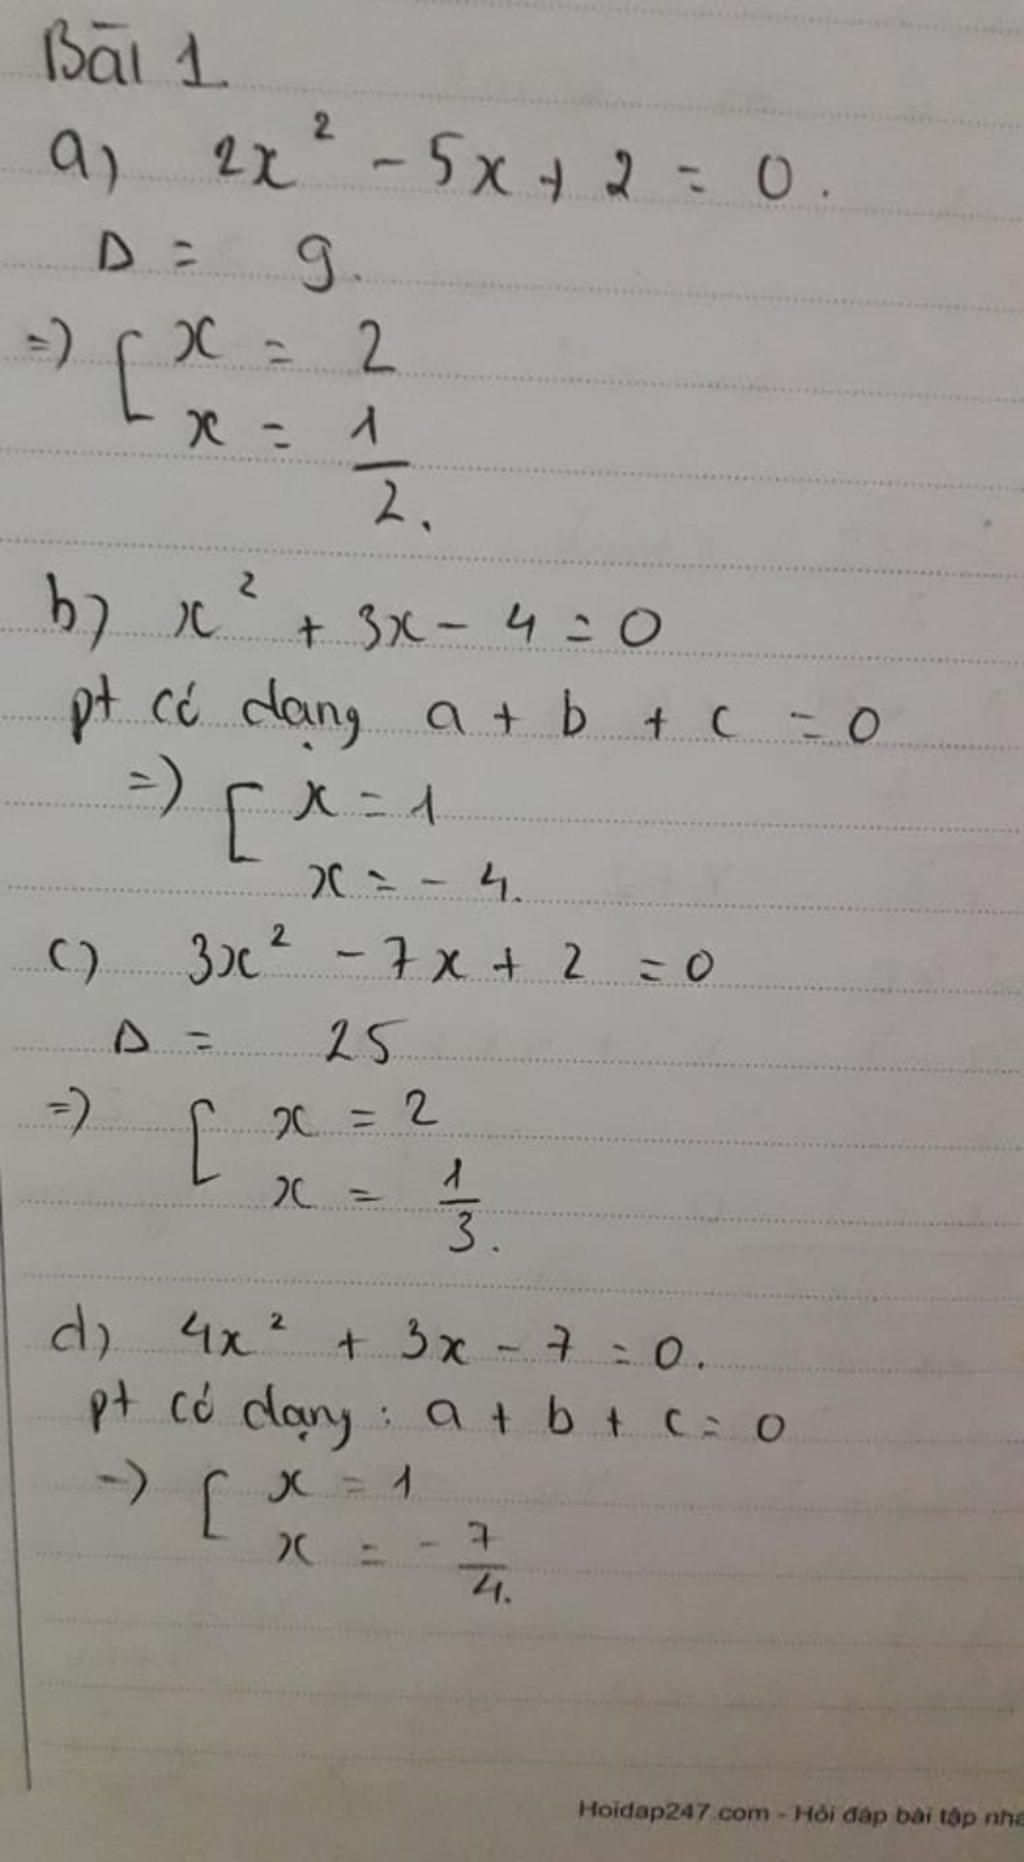 Bài 1
a) 2x² - 5x + 2 = 0.
Δ = 9.
=> [ x = 2
x = 1/2.
b) x² + 3x - 4 = 0
pt có dạng a + b + c = 0
=> [ x = 1
x = - 4.
c) 3x² - 7x + 2 = 0
Δ = 25
=> [ x = 2
x = 1/3.
d) 4x² + 3x - 7 = 0.
pt có dạng : a + b + c = 0
-> [ x = 1
x = - 7/4.
Hoidap247.com - Hỏi đáp bài tập nha